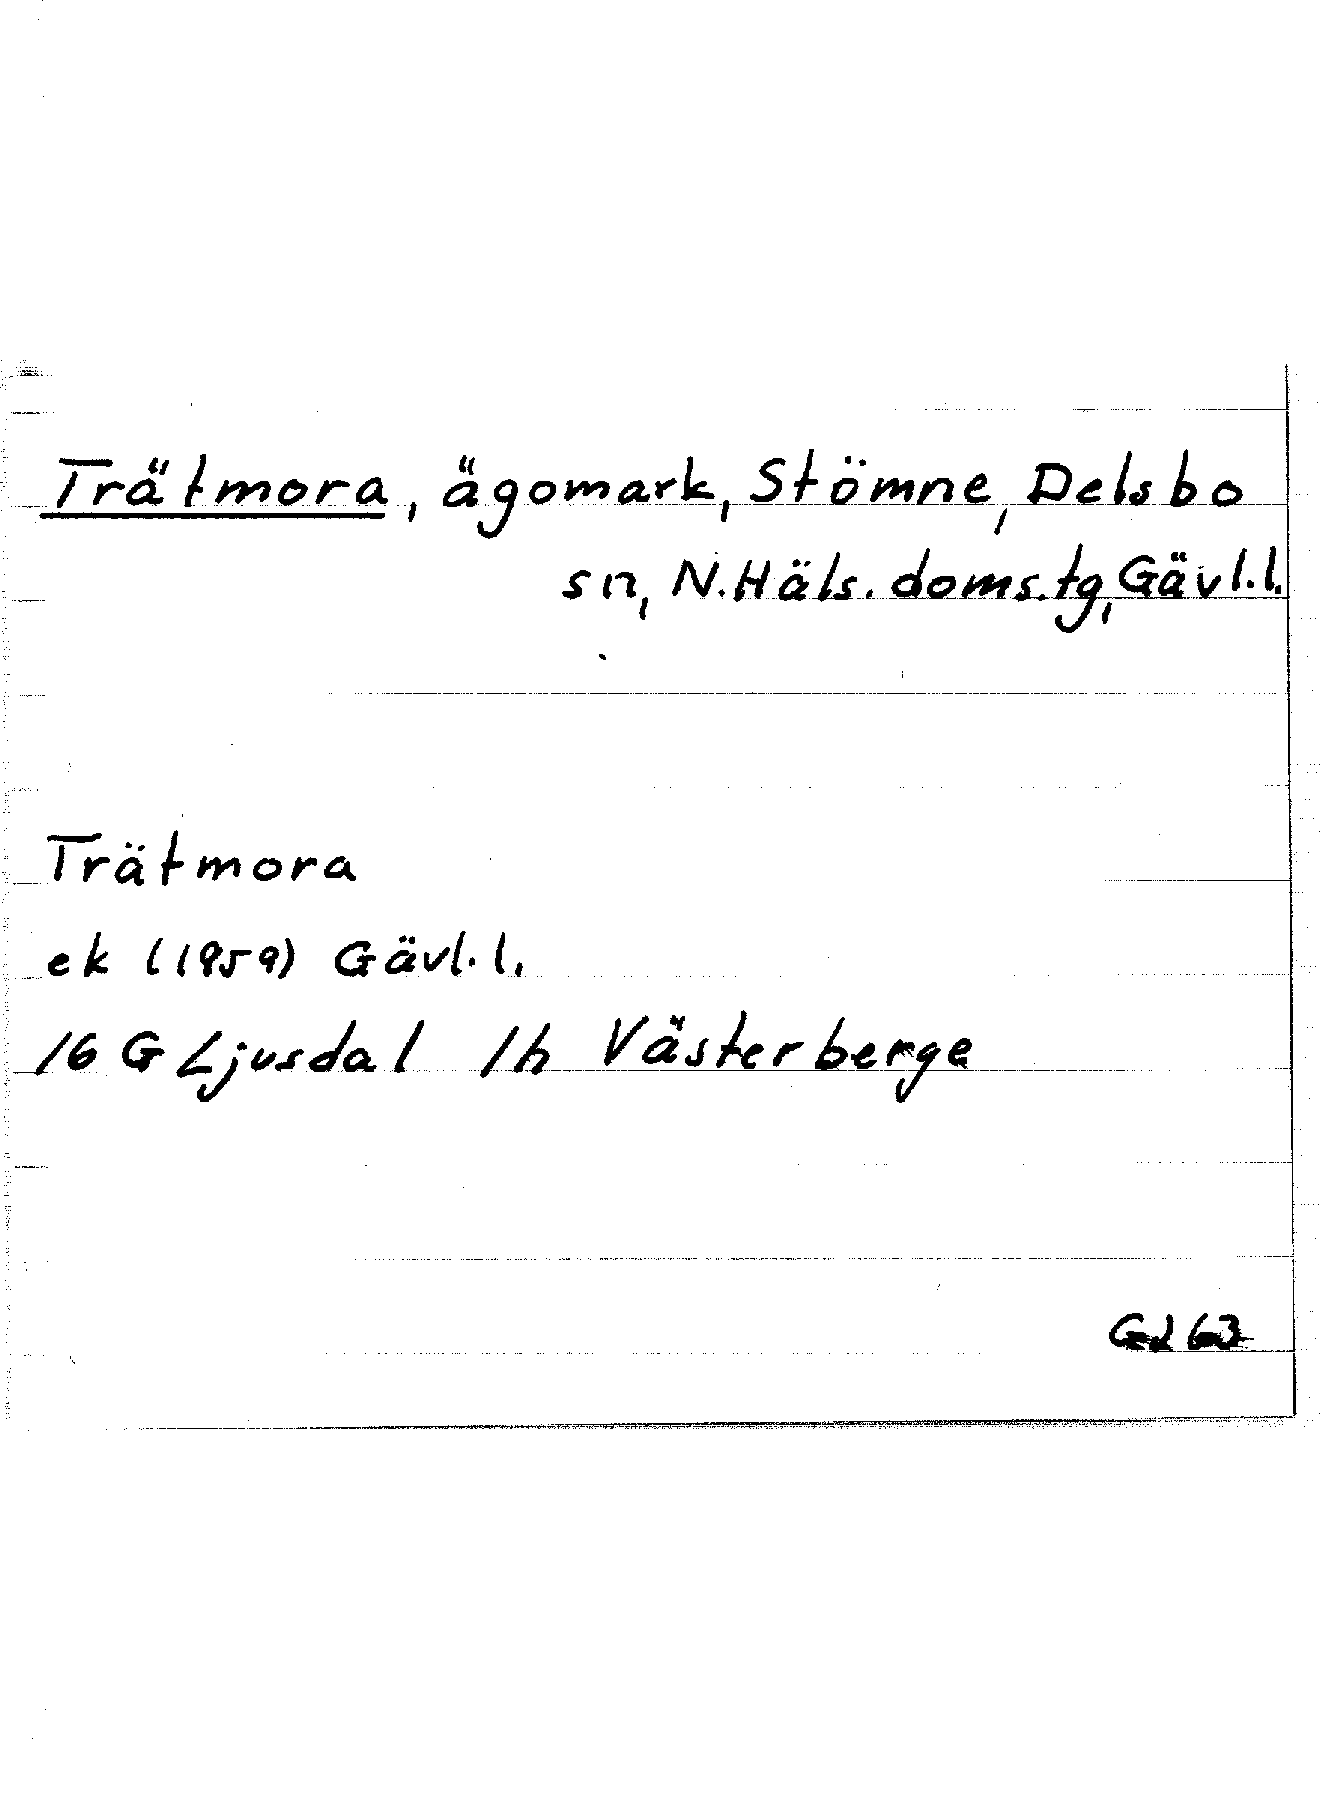 Trätmora, ägomark, Stömne, Delsbo
sn, N.Häls.doms.tg, Gävl.l.
Trätmora
ek (1959) Gävl.l.
16 G Ljusdal 1h Västerberge